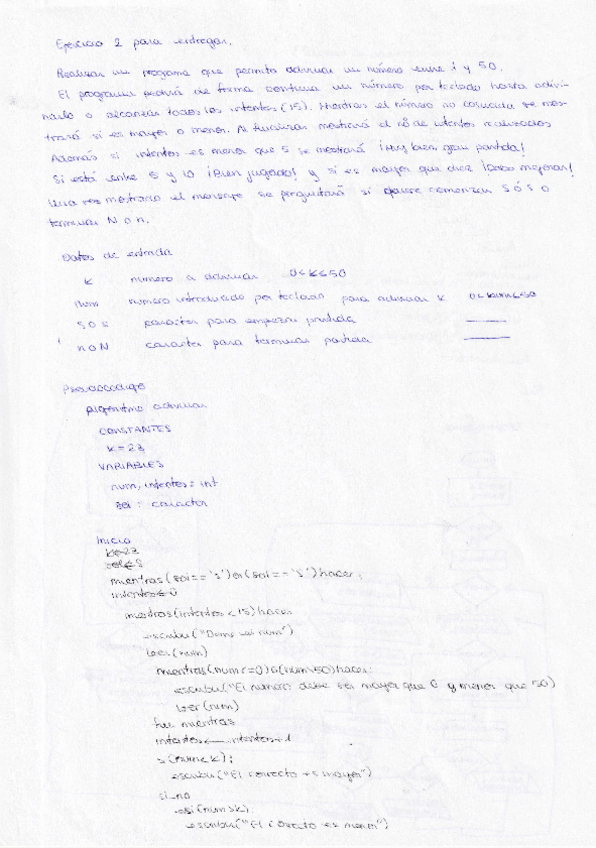 Ejercicio 2 para entregar.
Realizar un programa que permita adivinar un número entre 1 y 50.
El programa pedirá de forma continua un número por teclado hasta adivi-
narlo o alcanzar todos los intentos (15). Mientras el número no coincida se mos-
trará si es mayor o menor. Al finalizar mostrará el nº de intentos realizados
Además si intentos es menor que 5 se mostrará ¡Muy bien, gran partida!
Si está entre 5 y 10 ¡Bien jugado! y si es mayor que diez ¡Debes mejorar!
Una vez mostrado el mensaje se preguntará si quiere comenzar S ó s o
terminar N o n.
Datos de entrada
k número a adivinar 0<k≤50
num número introducido por teclado para adivinar k 0<num≤50
s o S caracter para empezar partida
n o N caracter para terminar partida
Pseudocódigo
Algoritmo adivinar
CONSTANTES
k = 23
VARIABLES
num, intentos = int
sel = caracter
Inicio
k←23
sel←S
mientras (sel == 's') or (sel == 'S') hacer:
intentos← 0
mientras (intentos < 15) hacer
escribir ("Dame un num")
leer (num)
mientras (num <=0) o (num>50) hacer:
escribir ("El número debe ser mayor que 0 y menor que 50)
leer (num)
fin mientras
intentos ← intentos+1
si (num< k):
escribir ("El correcto es mayor")
si_no
si (num>k):
escribir ("El correcto es menor")